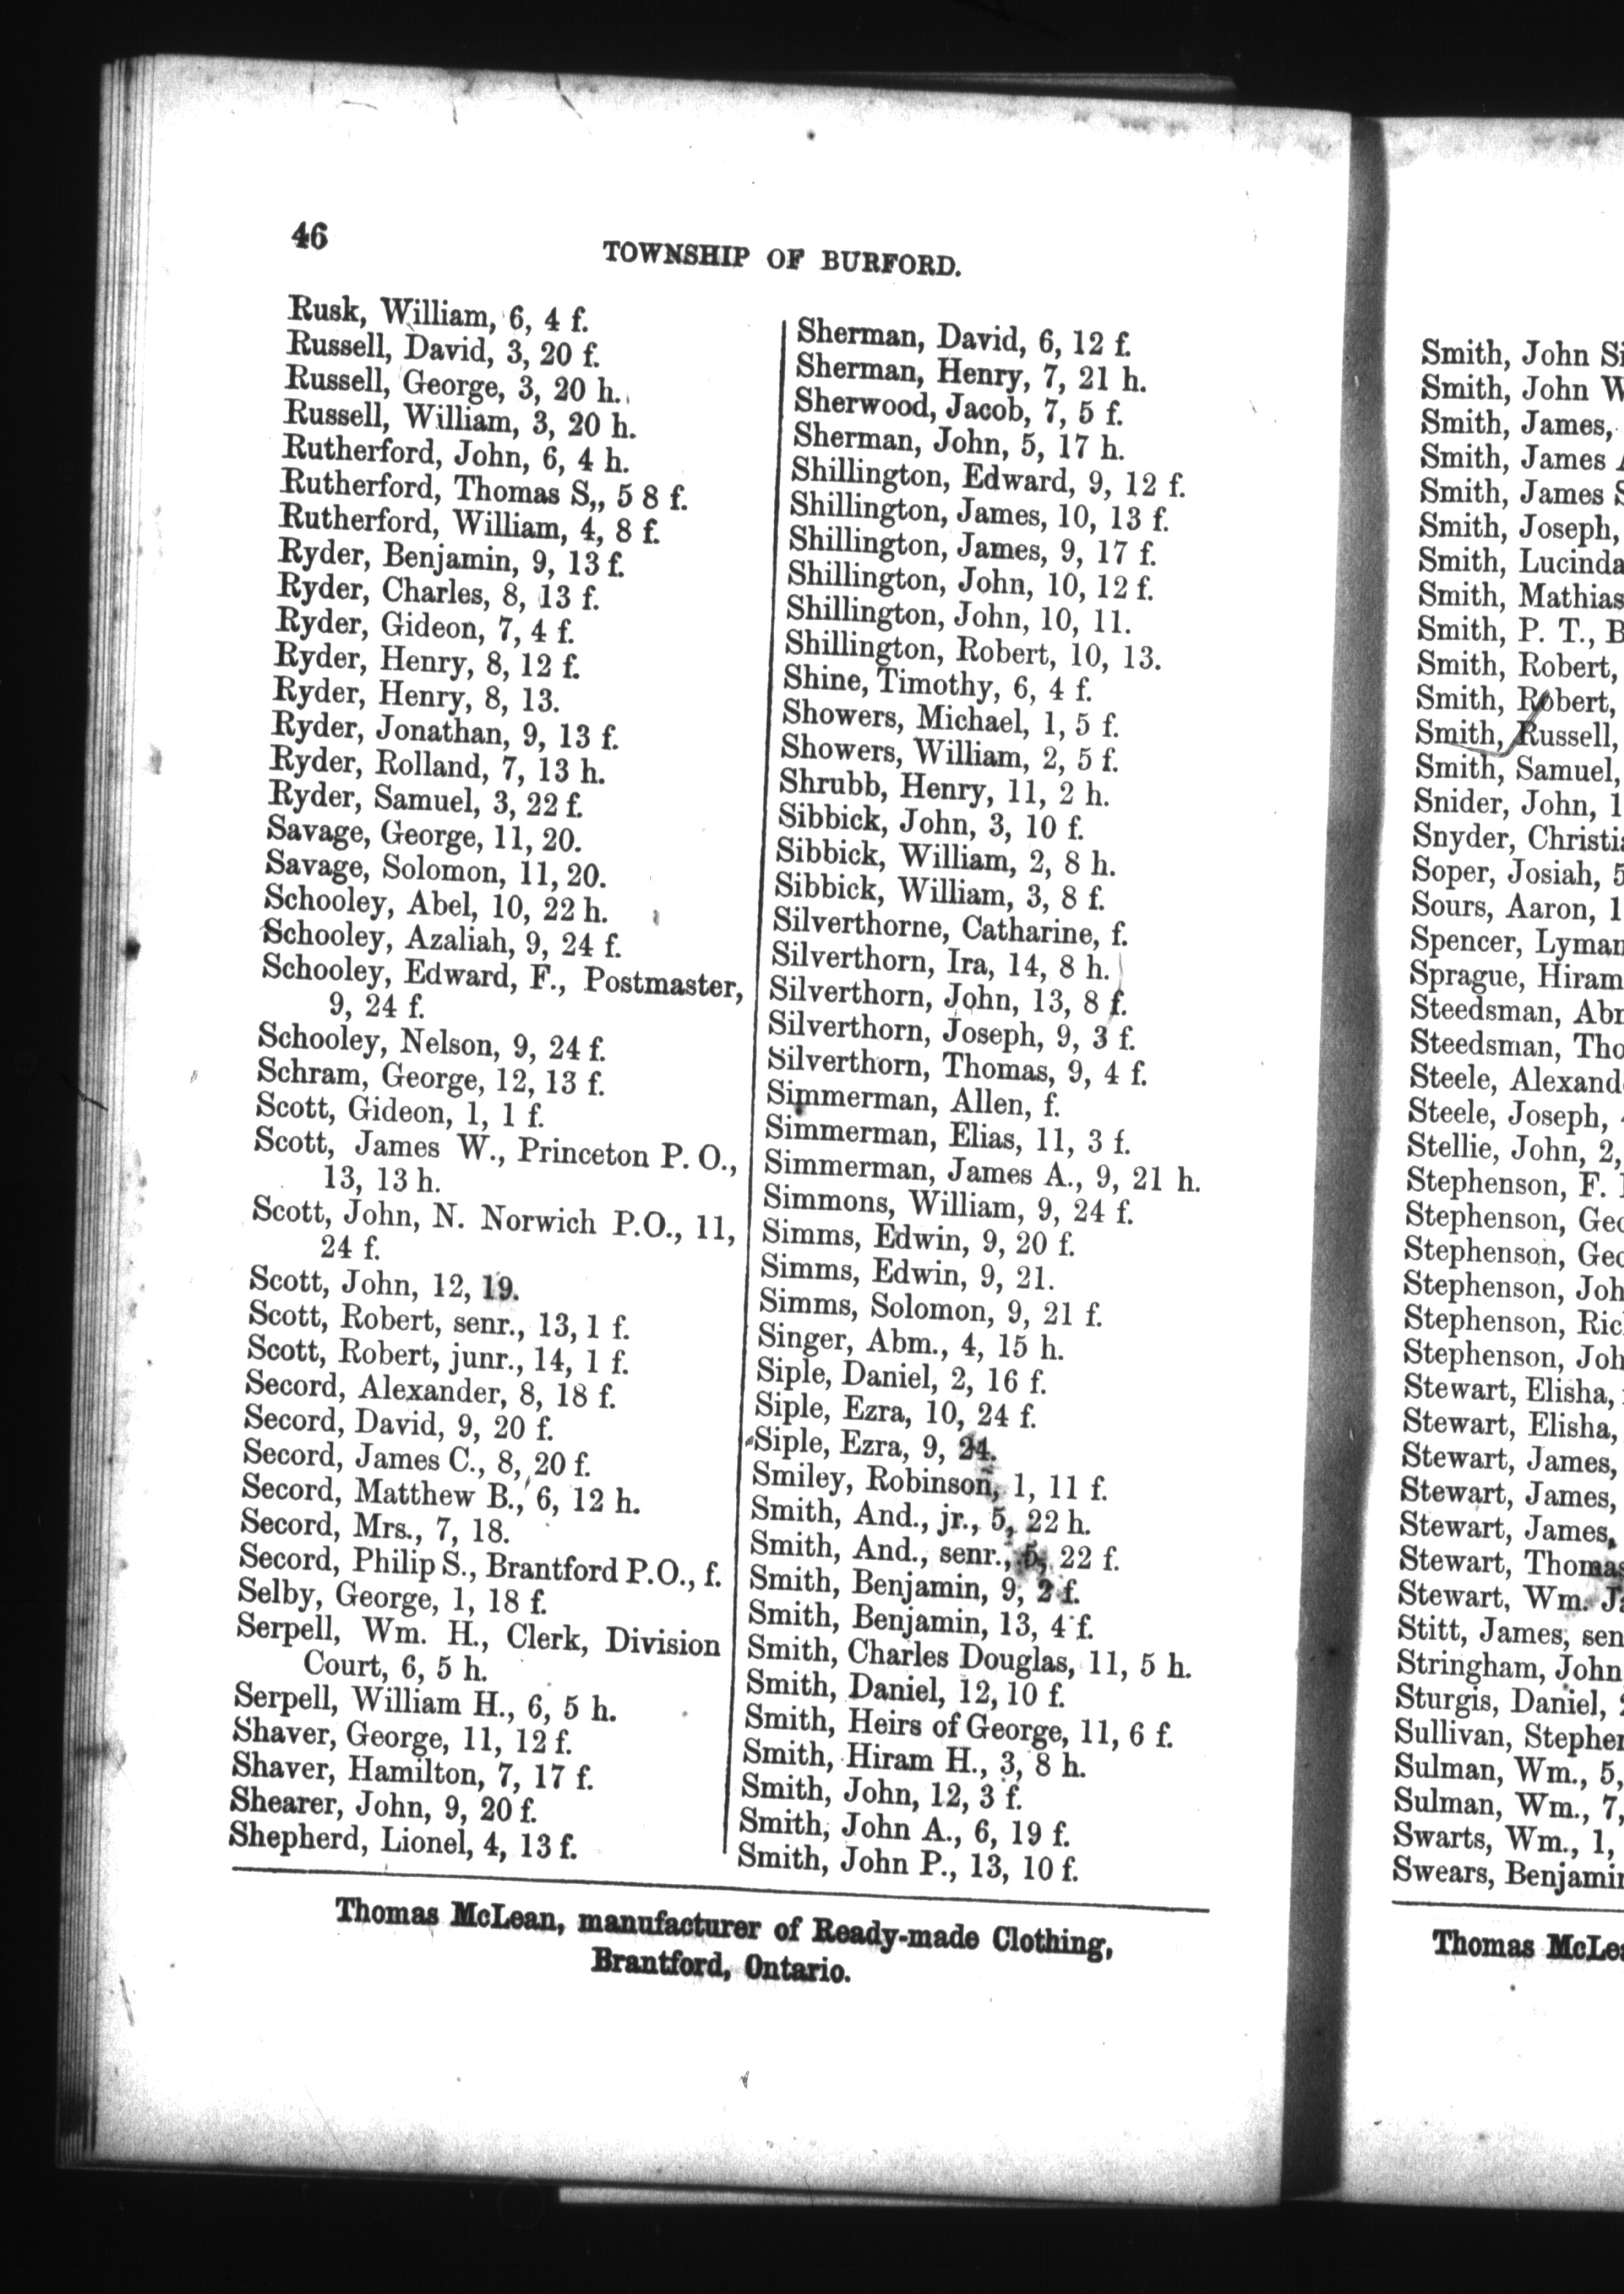 46
TOWNSHIP OF BURFORD.
Rusk, William, 6, 4 f.
Russell, David, 3, 20 f.
Russell, George, 3, 20 h.
Russell, William, 3, 20 h.
Rutherford, John, 6, 4 h.
Rutherford, Thomas S,, 5 8 f.
Rutherford, William, 4, 8 f.
Ryder, Benjamin, 9, 13 f.
Ryder, Charles, 8, 13 f.
Ryder, Gideon, 7, 4 f.
Ryder, Henry, 8, 12 f.
Ryder, Henry, 8, 13.
Ryder, Jonathan, 9, 13 f.
Ryder, Rolland, 7, 13 h.
Ryder, Samuel, 3, 22 f.
Savage, George, 11, 20.
Savage, Solomon, 11, 20.
Schooley, Abel, 10, 22 h.
Schooley, Azaliah, 9, 24 f.
Schooley, Edward, F., Postmaster,
9, 24 f.
Schooley, Nelson, 9, 24 f.
Schram, George, 12, 13 f.
Scott, Gideon, 1, 1 f.
Scott, James W., Princeton P. O.,
13, 13 h.
Scott, John, N. Norwich P.O., 11,
24 f.
Scott, John, 12, 19.
Scott, Robert, senr., 13, 1 f.
Scott, Robert, junr., 14, 1 f.
Secord, Alexander, 8, 18 f.
Secord, David, 9, 20 f.
Secord, James C., 8, 20 f.
Secord, Matthew B., 6, 12 h.
Secord, Mrs., 7, 18.
Secord, Philip S., Brantford P.O., f.
Selby, George, 1, 18 f.
Serpell, Wm. H., Clerk, Division
Court, 6, 5 h.
Serpell, William H., 6, 5 h.
Shaver, George, 11, 12 f.
Shaver, Hamilton, 7, 17 f.
Shearer, John, 9, 20 f.
Shepherd, Lionel, 4, 13 f.
Sherman, David, 6, 12 f.
Sherman, Henry, 7, 21 h.
Sherwood, Jacob, 7, 5 f.
Sherman, John, 5, 17 h.
Shillington, Edward, 9, 12 f.
Shillington, James, 10, 13 f.
Shillington, James, 9, 17 f.
Shillington, John, 10, 12 f.
Shillington, John, 10, 11.
Shillington, Robert, 10, 13.
Shine, Timothy, 6, 4 f.
Showers, Michael, 1, 5 f.
Showers, William, 2, 5 f.
Shrubb, Henry, 11, 2 h.
Sibbick, John, 3, 10 f.
Sibbick, William, 2, 8 h.
Sibbick, William, 3, 8 f.
Silverthorne, Catharine, f.
Silverthorn, Ira, 14, 8 h.
Silverthorn, John, 13, 8 f.
Silverthorn, Joseph, 9, 3 f.
Silverthorn, Thomas, 9, 4 f.
Simmerman, Allen, f.
Simmerman, Elias, 11, 3 f.
Simmerman, James A., 9, 21 h.
Simmons, William, 9, 24 f.
Simms, Edwin, 9, 20 f.
Simms, Edwin, 9, 21.
Simms, Solomon, 9, 21 f.
Singer, Abm., 4, 15 h.
Siple, Daniel, 2, 16 f.
Siple, Ezra, 10, 24 f.
Siple, Ezra, 9, 24.
Smiley, Robinson, 1, 11 f.
Smith, And., jr., 5, 22 h.
Smith, And., senr., 5, 22 f.
Smith, Benjamin, 9, 2 f.
Smith, Benjamin, 13, 4 f.
Smith, Charles Douglas, 11, 5 h.
Smith, Daniel, 12, 10 f.
Smith, Heirs of George, 11, 6 f.
Smith, Hiram H., 3, 8 h.
Smith, John, 12, 3 f.
Smith, John A., 6, 19 f.
Smith, John P., 13, 10 f.
Thomas McLean, manufacturer of Ready-made Clothing,
Brantford, Ontario.
Smith, John
Smith, John
Smith, James,
Smith, James
Smith, James
Smith, Joseph,
Smith, Lucinda
Smith, Mathias
Smith, P. T.,
Smith, Robert,
Smith, Robert,
Smith, Russell,
Smith, Samuel,
Snider, John,
Snyder,
Soper, Josiah,
Sours, Aaron,
Spencer, Lyman
Sprague, Hiram
Steedsman,
Steedsman,
Steele,
Steele, Joseph,
Stellie, John, 2,
Stephenson, F.
Stephenson,
Stephenson,
Stephenson,
Stephenson,
Stephenson,
Stewart, Elisha,
Stewart, Elisha,
Stewart, James,
Stewart, James,
Stewart, James,
Stewart, Thomas
Stewart, Wm.
Stitt, James,
Stringham, John
Sturgis, Daniel,
Sullivan,
Sulman, Wm., 5,
Sulman, Wm., 7,
Swarts, Wm., 1,
Swears,
Thomas